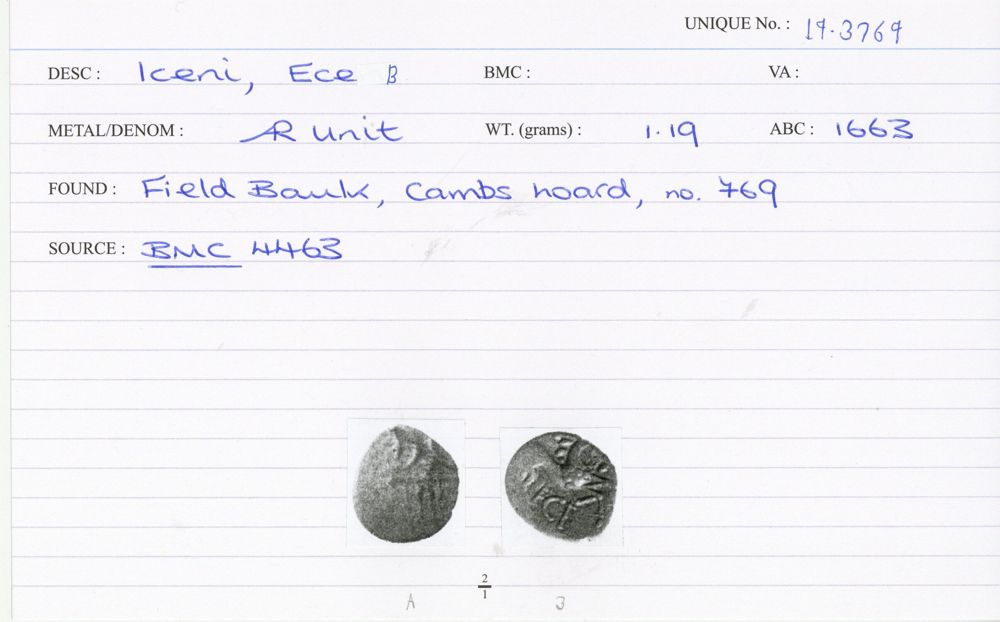 UNIQUE No. : 19.3769
DESC : Iceni, Ece B BMC : VA :
METAL/DENOM : AR unit WT. (grams) : 1.19 ABC : 1663
FOUND : Field Baulk, Cambs hoard, no. 769
SOURCE : BMC 4463
2
1
A 3